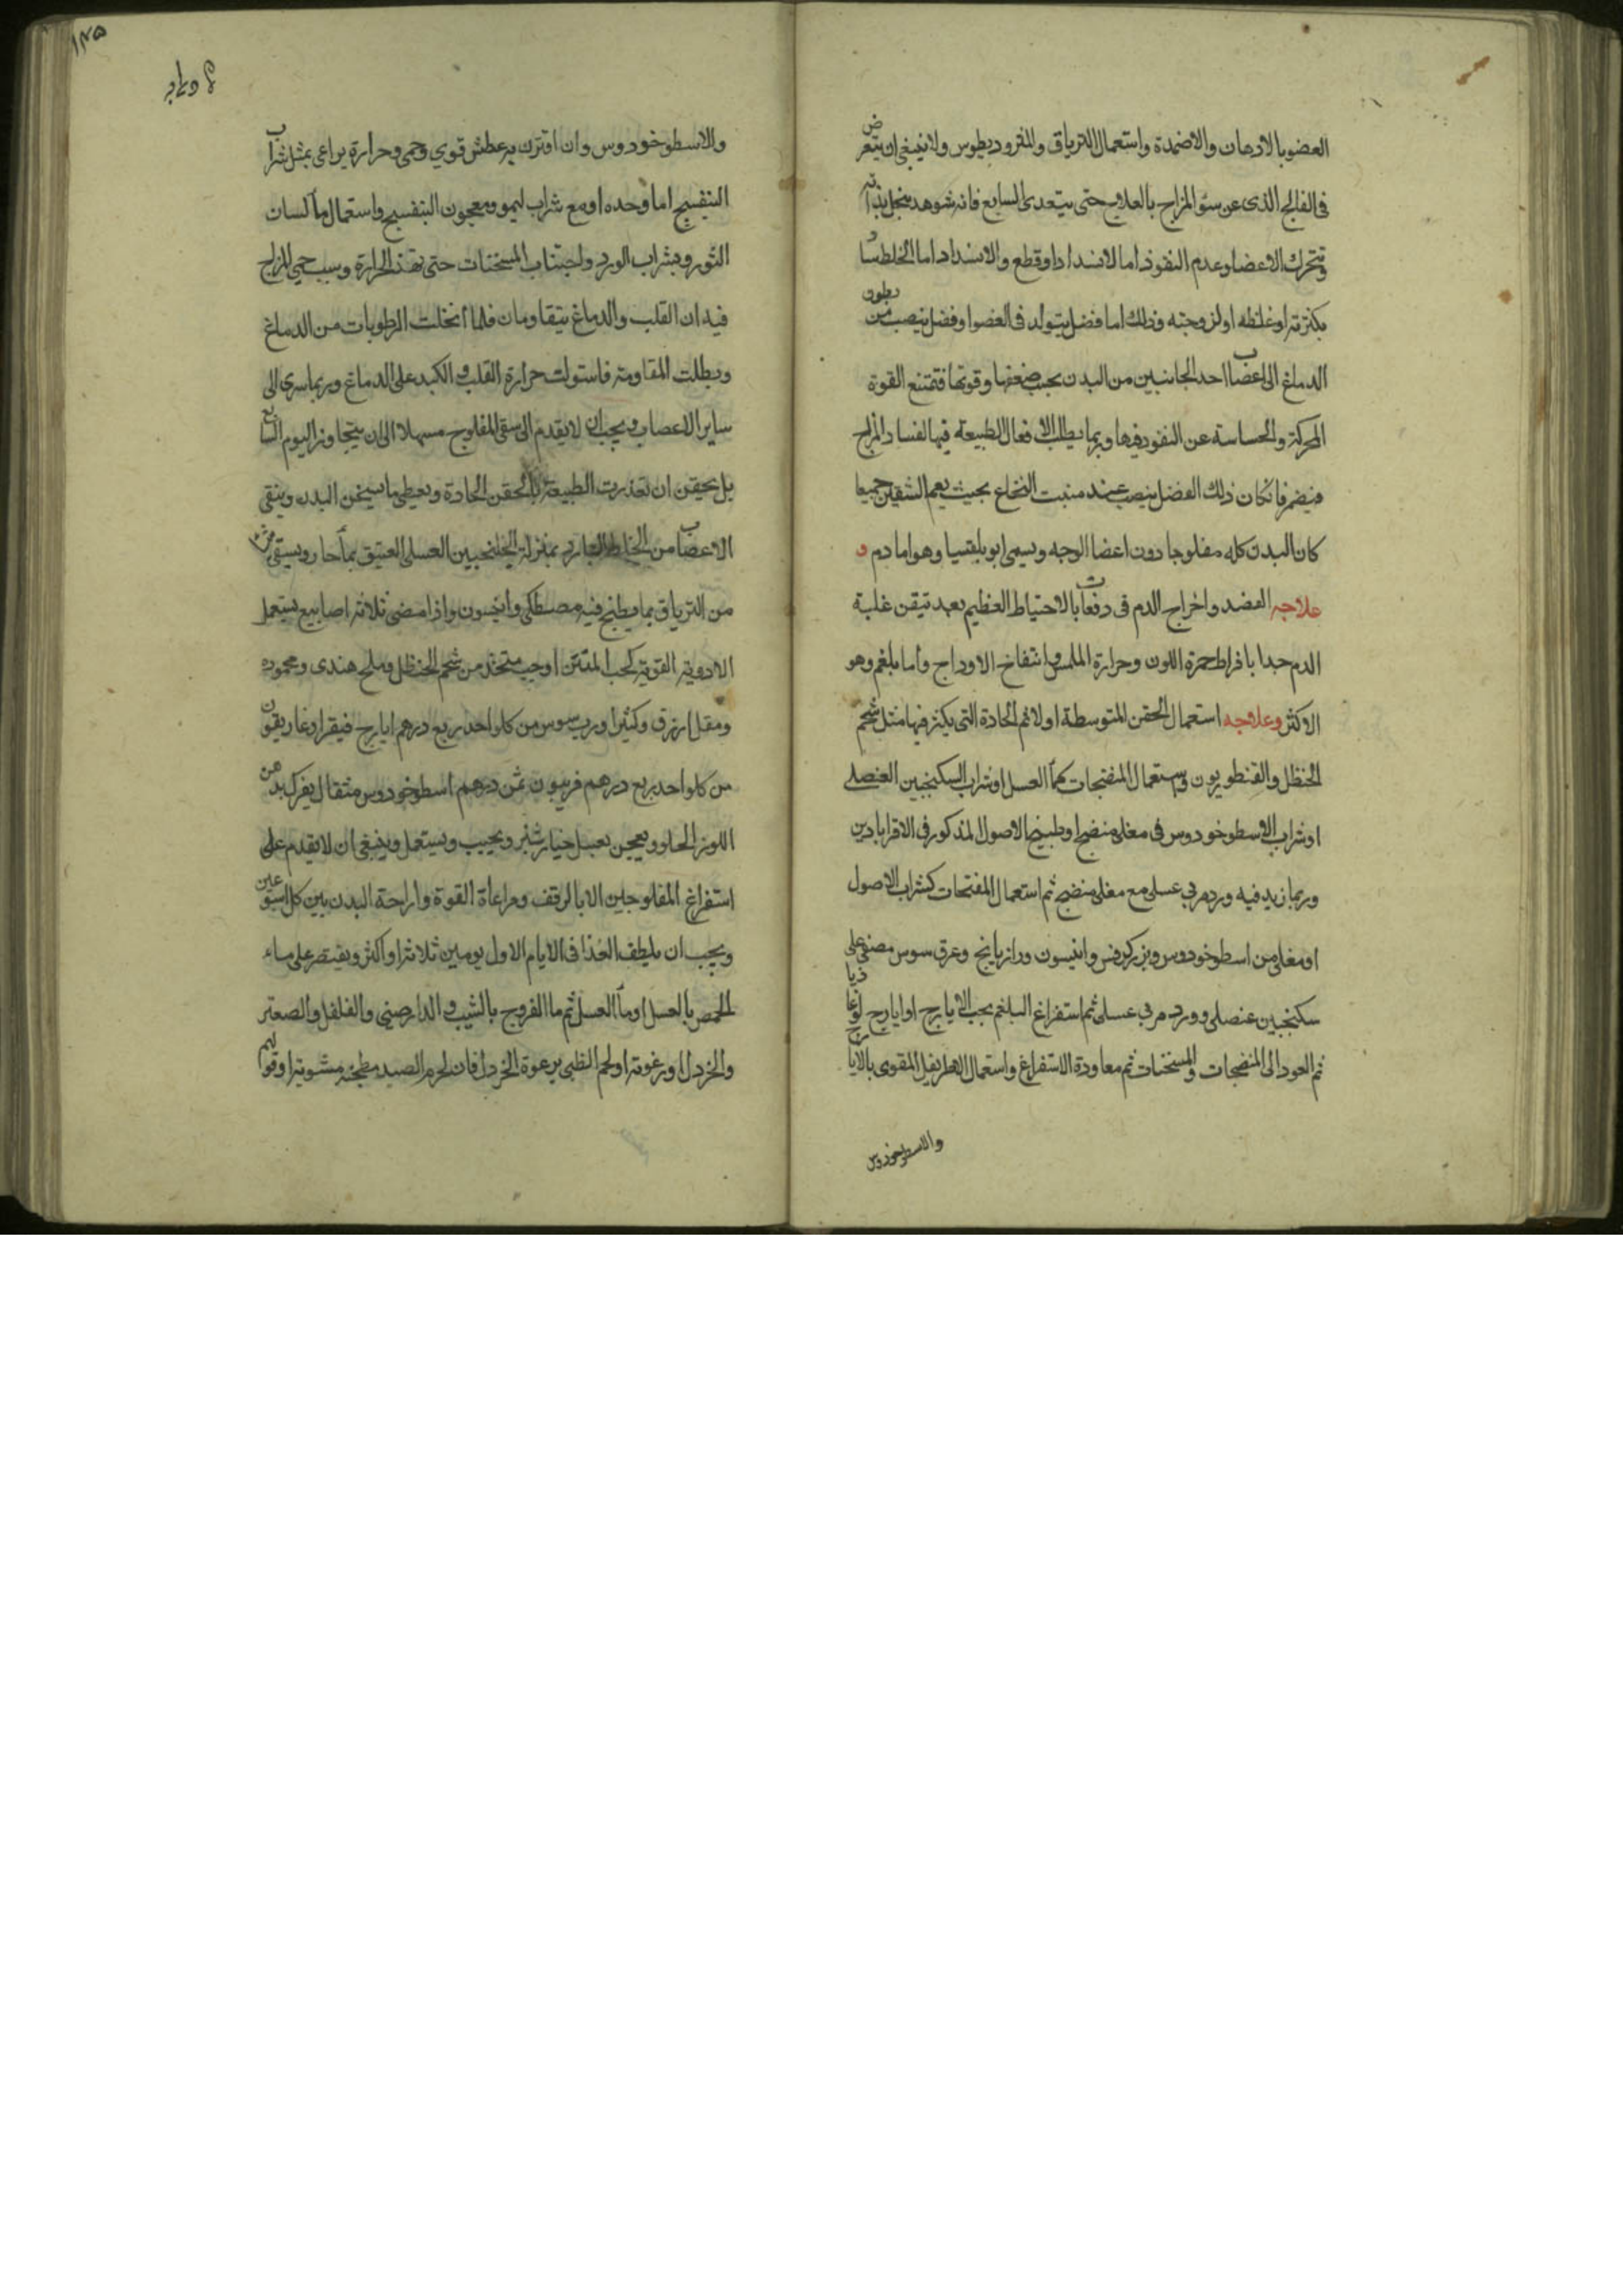 العضو بالادهان والاضمدة واستعمال الترياق والمثروديطوس ولا ينبغي ان يتعرض
في الفالج الذي عن سؤ المزاج بالعلاج حتى يتعدى السابع فانه شوهد بذاته
وتتحرك الاعضا وعدم النفوذ اما لانسداد او قطع والانسداد اما لخلط ساد
بكثرته او غلظه او لزوجته وذلك اما فضل يتولد في العضو او فضل ينصب من بطون
الدماغ الى اعصاب احد الجانبين من البدن بحسب ضعفها وقوتها فتمتنع القوة
المحركة والحساسة عن النفوذ فيها وربما بطلت الافعال الطبيعة فيها لفساد المزاج
فيضمر فان كان ذلك الفضل ينصب عند منبت النخاع بحيث يعم الشقين جميعا
كان البدن كله مفلوجا دون اعضا الوجه ويسمى ابوبلقسيا وهو اما دم و
علاجه الفصد واخراج الدم في دفعات بالاحتياط العظيم بعد تيقن غلبة
الدم جدا بافراط حمرة اللون وحرارة الملمس وانتفاخ الاوداج واما بلغم وهو
الاكثر وعلاجه استعمال الحقن المتوسطة اولا ثم الحادة التي يكثر فيها مثل شحم
الحنظل والقنطوريون واستعمال المنضجات كماء العسل او شراب السكنجبين العنصلي
او شراب الاسطوخودوس في مغلي منضج او طبيخ الاصول المذكور في الاقراباذين
وربما زيد فيه ورد مربي عسلي مع مغلي منضج ثم استعمال المفتحات كشراب الاصول
او مغلي من اسطوخودوس وبزر كرفس وانيسون ورازيانج وعرق سوس مصفى على
سكنجبين عنصلي وورد مربي عسلي ثم استفراغ البلغم بحب الايارج او ايارج لوغاذيا
ثم العود الى المنضجات والمسخنات ثم معاودة الاستفراغ واستعمال الاطريفل المقوى بالايارج
والاسطوخودوس
١٢٥
والاسطوخودوس وان اقترن به عطش قوي وحمى وحرارة يراعي بمثل شراب
البنفسج اما وحده او مع شراب ليمو ومعجون البنفسج واستعمال ماء لسان
الثور وبشراب الورد واجتناب المسخنات حتى تهد الحرارة وسبب حمى المزاج
فيه ان القلب والدماغ يتقاومان فلما انحلت الرطوبات من الدماغ
وبطلت المقاومة فاستولت حرارة القلب والكبد على الدماغ وربما سرى الى
ساير الاعصاب ويجب ان لا يقدم الى سقي المفلوج مسهلا الى ان يتجاوز اليوم السابع
بل يحقن ان تعذرت الطبيعة بالحقن الحادة ويعطي ما يسخن البدن وينقي
الاعصاب من الخلط البارد بمنزلة الجلنجبين العسلي العتيق بماء حار ويسقى
من الترياق بما يطبخ فيه مصطكي وانيسون واذا مضى ثلاثة اسابيع يستعمل
الادوية القوية كحب المنتن او حب متخذ من شحم الحنظل وملح هندي ومحموده
ومقل ازرق وكثيرا ورب سوس من كل واحد ربع درهم ايارج فيقرا وغاريقون
من كل واحد ربع درهم فربيون ثمن درهم اسطوخودوس مثقال يفرك بدهن
اللوز الحلو ويعجن بعسل خيار شنبر ويحبب ويستعمل وينبغي ان لا يقدم على
استفراغ المفلوجين الا بالرفق ومراعاة القوة واراحة البدن بين كل اسبوعين
ويجب ان يلطف الغذا في الايام الاول يومين ثلاثة او اكثر ويقتصر على ماء
الحمص بالعسل او ماء العسل ثم ماء الفروج بالشبث والدارصيني والفلفل والصعتر
والخردل او رغوته او لحم الظبي برغوة الخردل فان لحوم الصيد مطجنة مشوية اوفق لهم